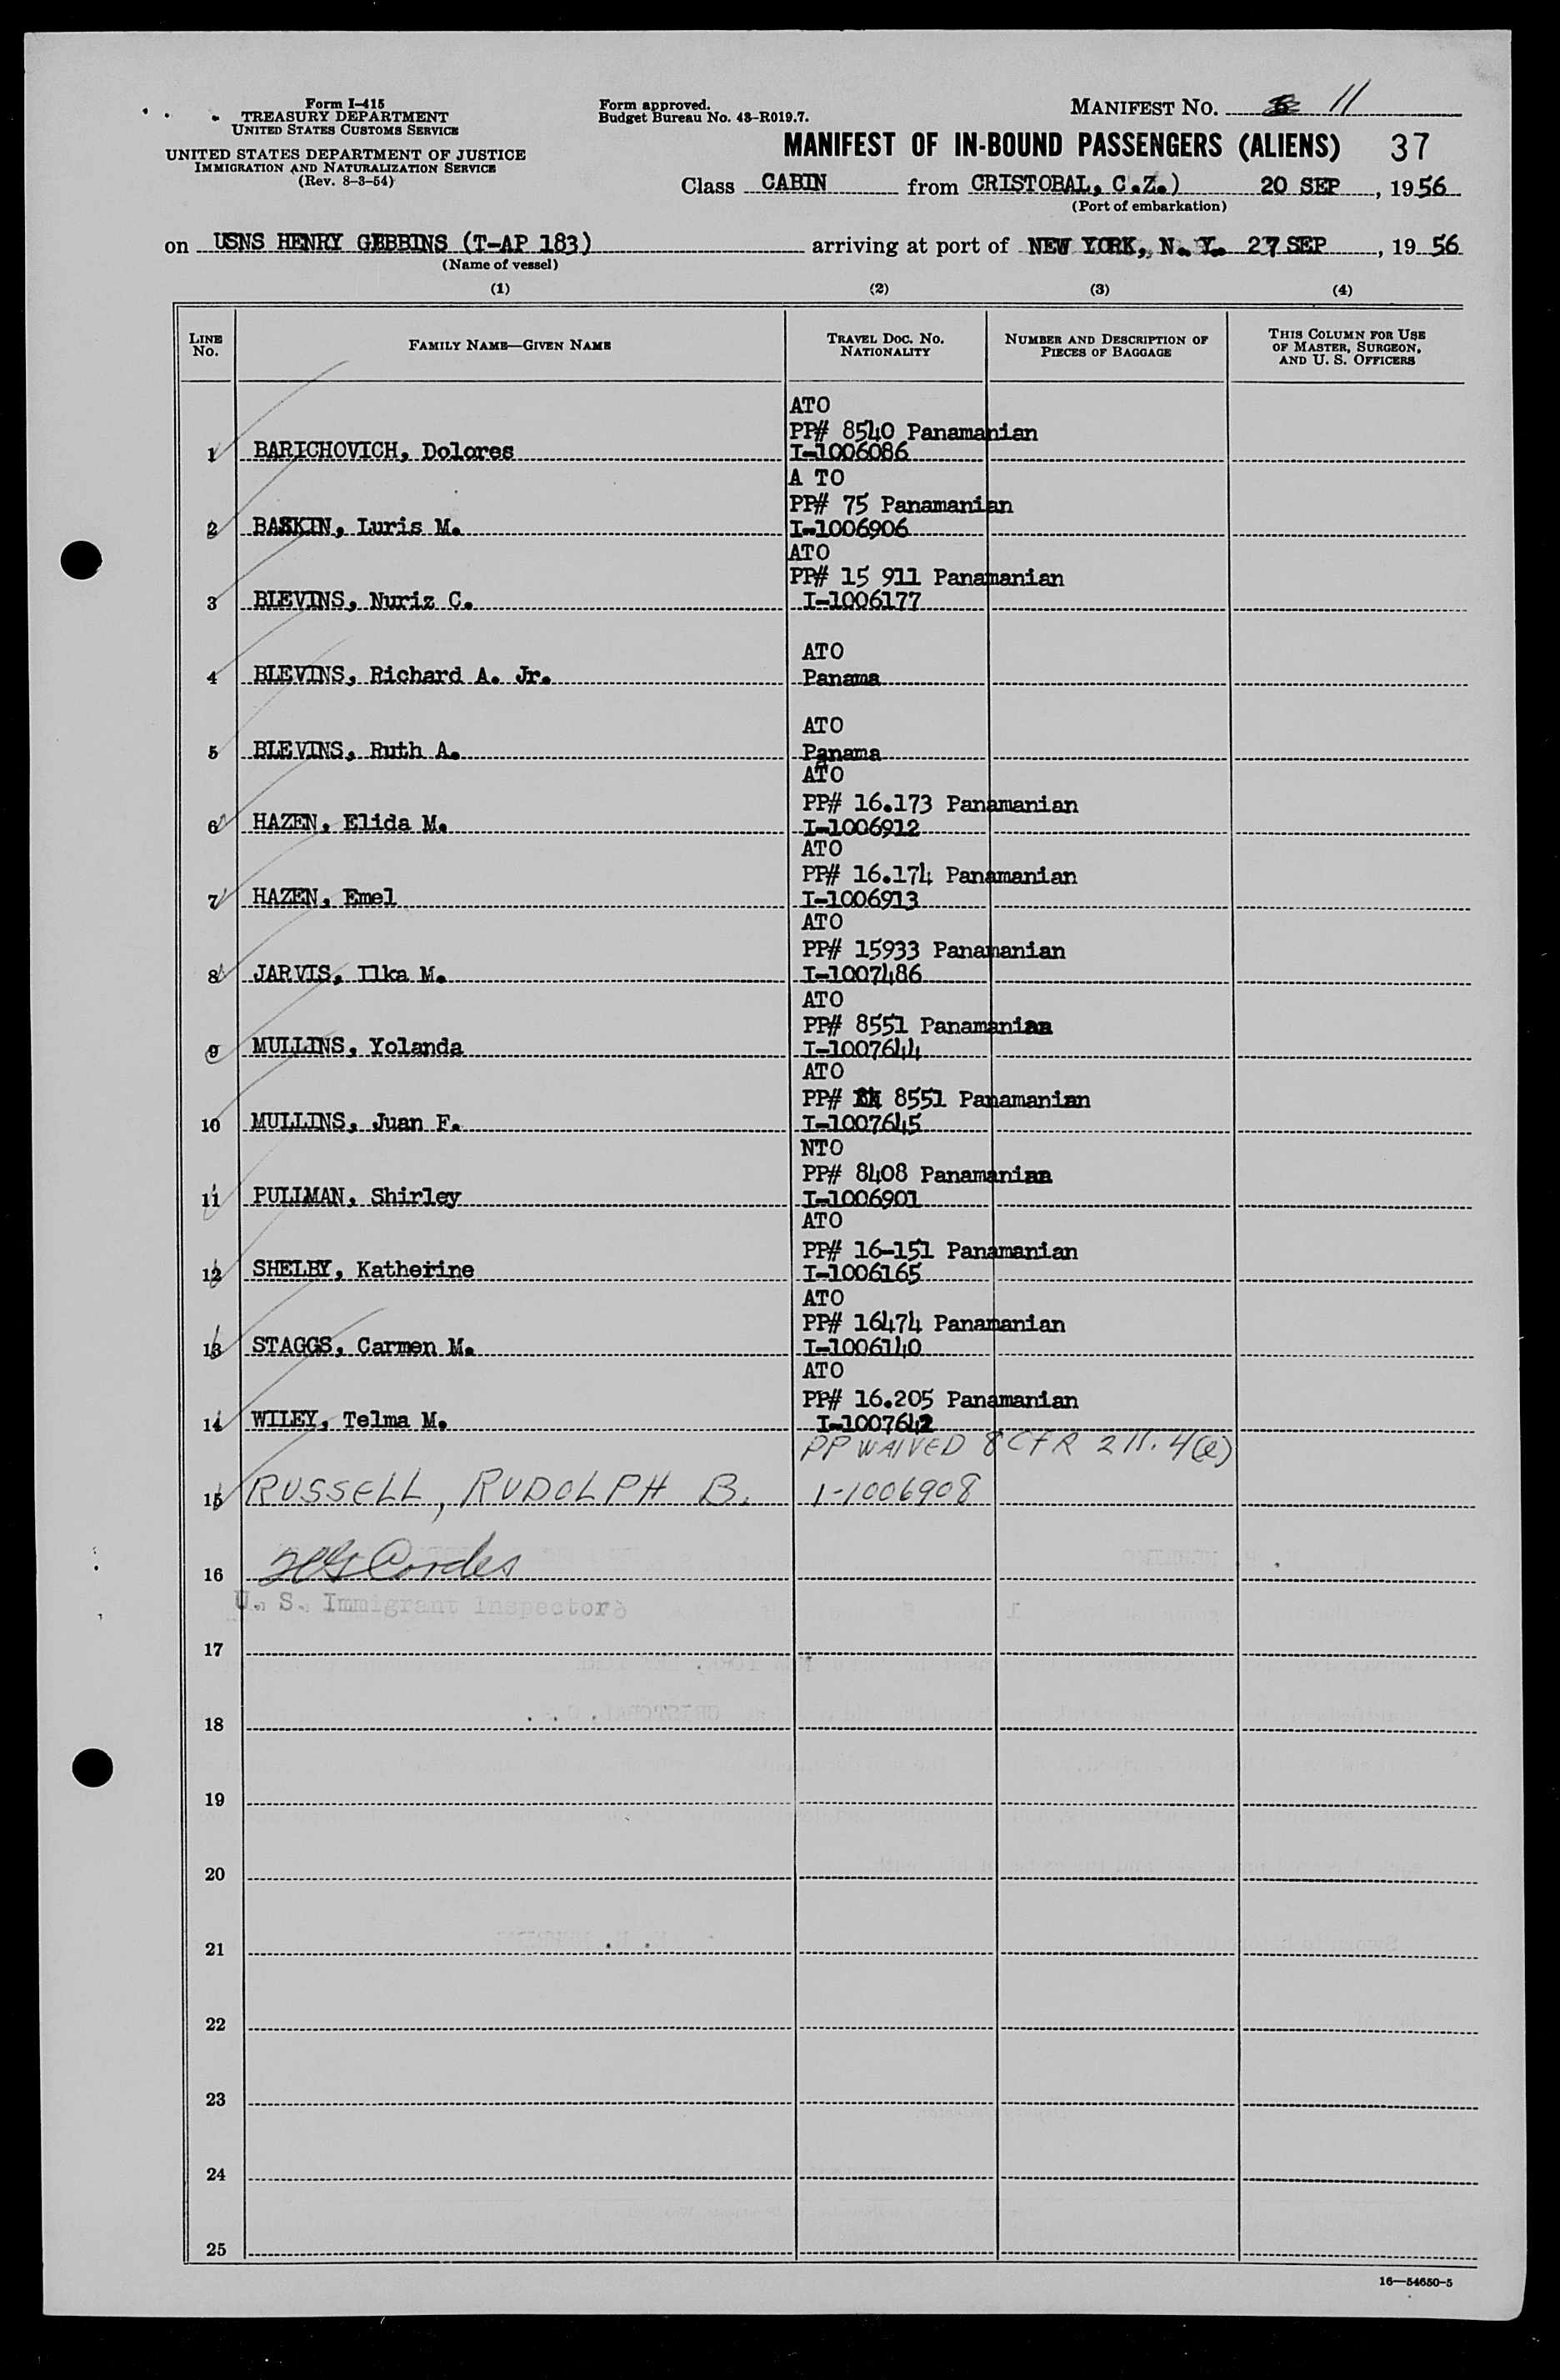 Form I-415
TREASURY DEPARTMENT
UNITED STATES CUSTOMS SERVICE
UNITED STATES DEPARTMENT OF JUSTICE
IMMIGRATION AND NATURALIZATION SERVICE
(Rev. 8-3-54)
Form approved.
Budget Bureau No. 43-R019.7.
MANIFEST NO. 11
MANIFEST OF IN-BOUND PASSENGERS (ALIENS) 37
Class CABIN from CRISTOBAL, C.Z.) 20 SEP, 1956
(Port of embarkation)
on USNS HENRY GEBBINS (T-AP 183) arriving at port of NEW YORK, N. Y. 27 SEP, 1956
(Name of vessel)
(1) (2) (3) (4)
LINE No. FAMILY NAME—GIVEN NAME TRAVEL DOC. NO. NATIONALITY NUMBER AND DESCRIPTION OF PIECES OF BAGGAGE THIS COLUMN FOR USE OF MASTER, SURGEON, AND U. S. OFFICERS
ATO
PP# 8540 Panamanian
1 BARICHOVICH, Dolores I-1006086
A TO
PP# 75 Panamanian
2 BASKIN, Luris M. I-1006906
ATO
PP# 15 911 Panamanian
3 BLEVINS, Nuriz C. I-1006177
ATO
4 BLEVINS, Richard A. Jr. Panama
ATO
5 BLEVINS, Ruth A. Panama
ATO
PP# 16.173 Panamanian
6 HAZEN, Elida M. I-1006912
ATO
PP# 16.174 Panamanian
7 HAZEN, Emel I-1006913
ATO
PP# 15933 Panamanian
8 JARVIS, Ilka M. I-1007486
ATO
PP# 8551 Panamanian
9 MULLINS, Yolanda I-1007644
ATO
PP# 8551 Panamanian
10 MULLINS, Juan F. I-1007645
NTO
PP# 8408 Panamanian
11 PULLMAN, Shirley I-1006901
ATO
PP# 16-151 Panamanian
12 SHELBY, Katherine I-1006165
ATO
PP# 16474 Panamanian
13 STAGGS, Carmen M. I-1006140
ATO
PP# 16.205 Panamanian
14 WILEY, Telma M. I-1007642
PP WAIVED 8 CFR 211.4(e)
15 RUSSELL, RUDOLPH B. I-1006908
16 Cordes
U. S. Immigrant Inspector
17
18
19
20
21
22
23
24
25
16—54650-5